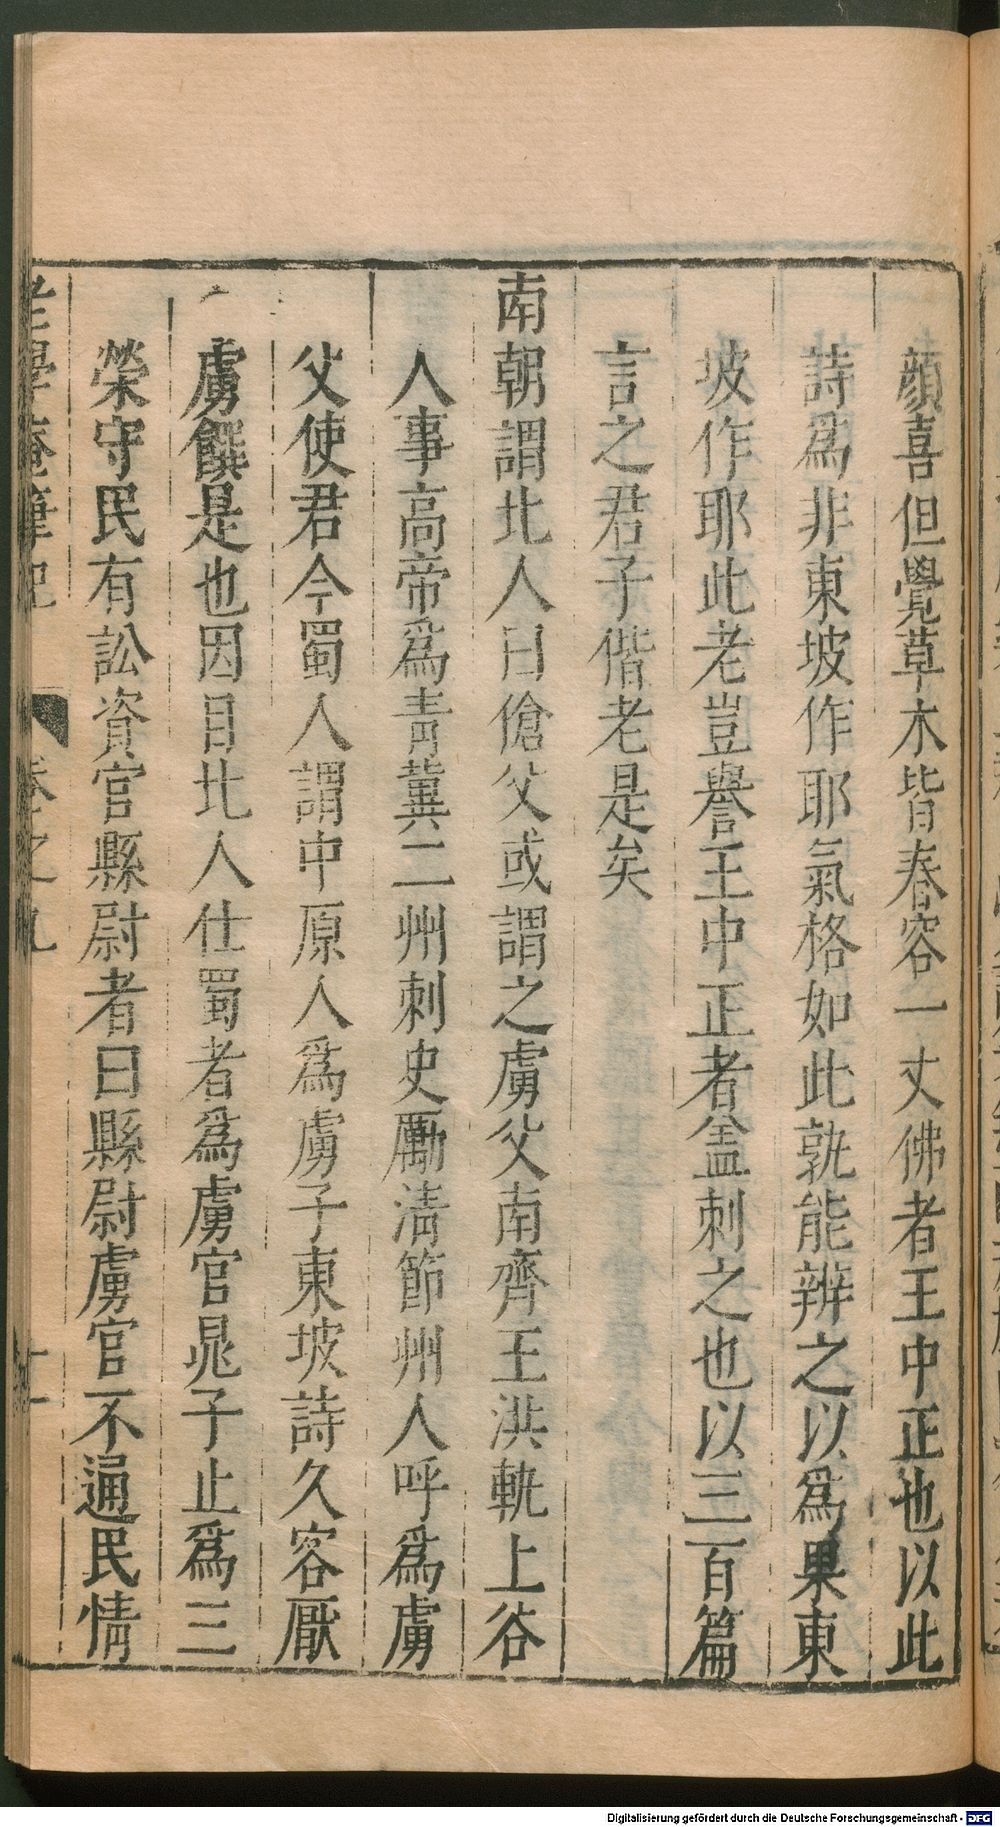 顔喜但覺草木皆春容一丈佛者王中正也以此
詩爲非東坡作耶氣格如此孰能辨之以爲果東
坡作耶此老豈譽王中正者盖刺之也以三百篇
言之君子偕老是矣
南朝謂北人曰傖父或謂之虜父南齊王洪軌上谷
人事高帝爲青冀二州刺史勵清節州人呼爲虜
父使君今蜀人謂中原人爲虜子東坡詩久客厭
虜饌是也因目北人仕蜀者爲虜官晁子止爲三
榮守民有訟資官縣尉者曰縣尉虜官不通民情
老學庵筆記 卷之九 十一
Digitalisierung gefördert durch die Deutsche Forschungsgemeinschaft - DFG